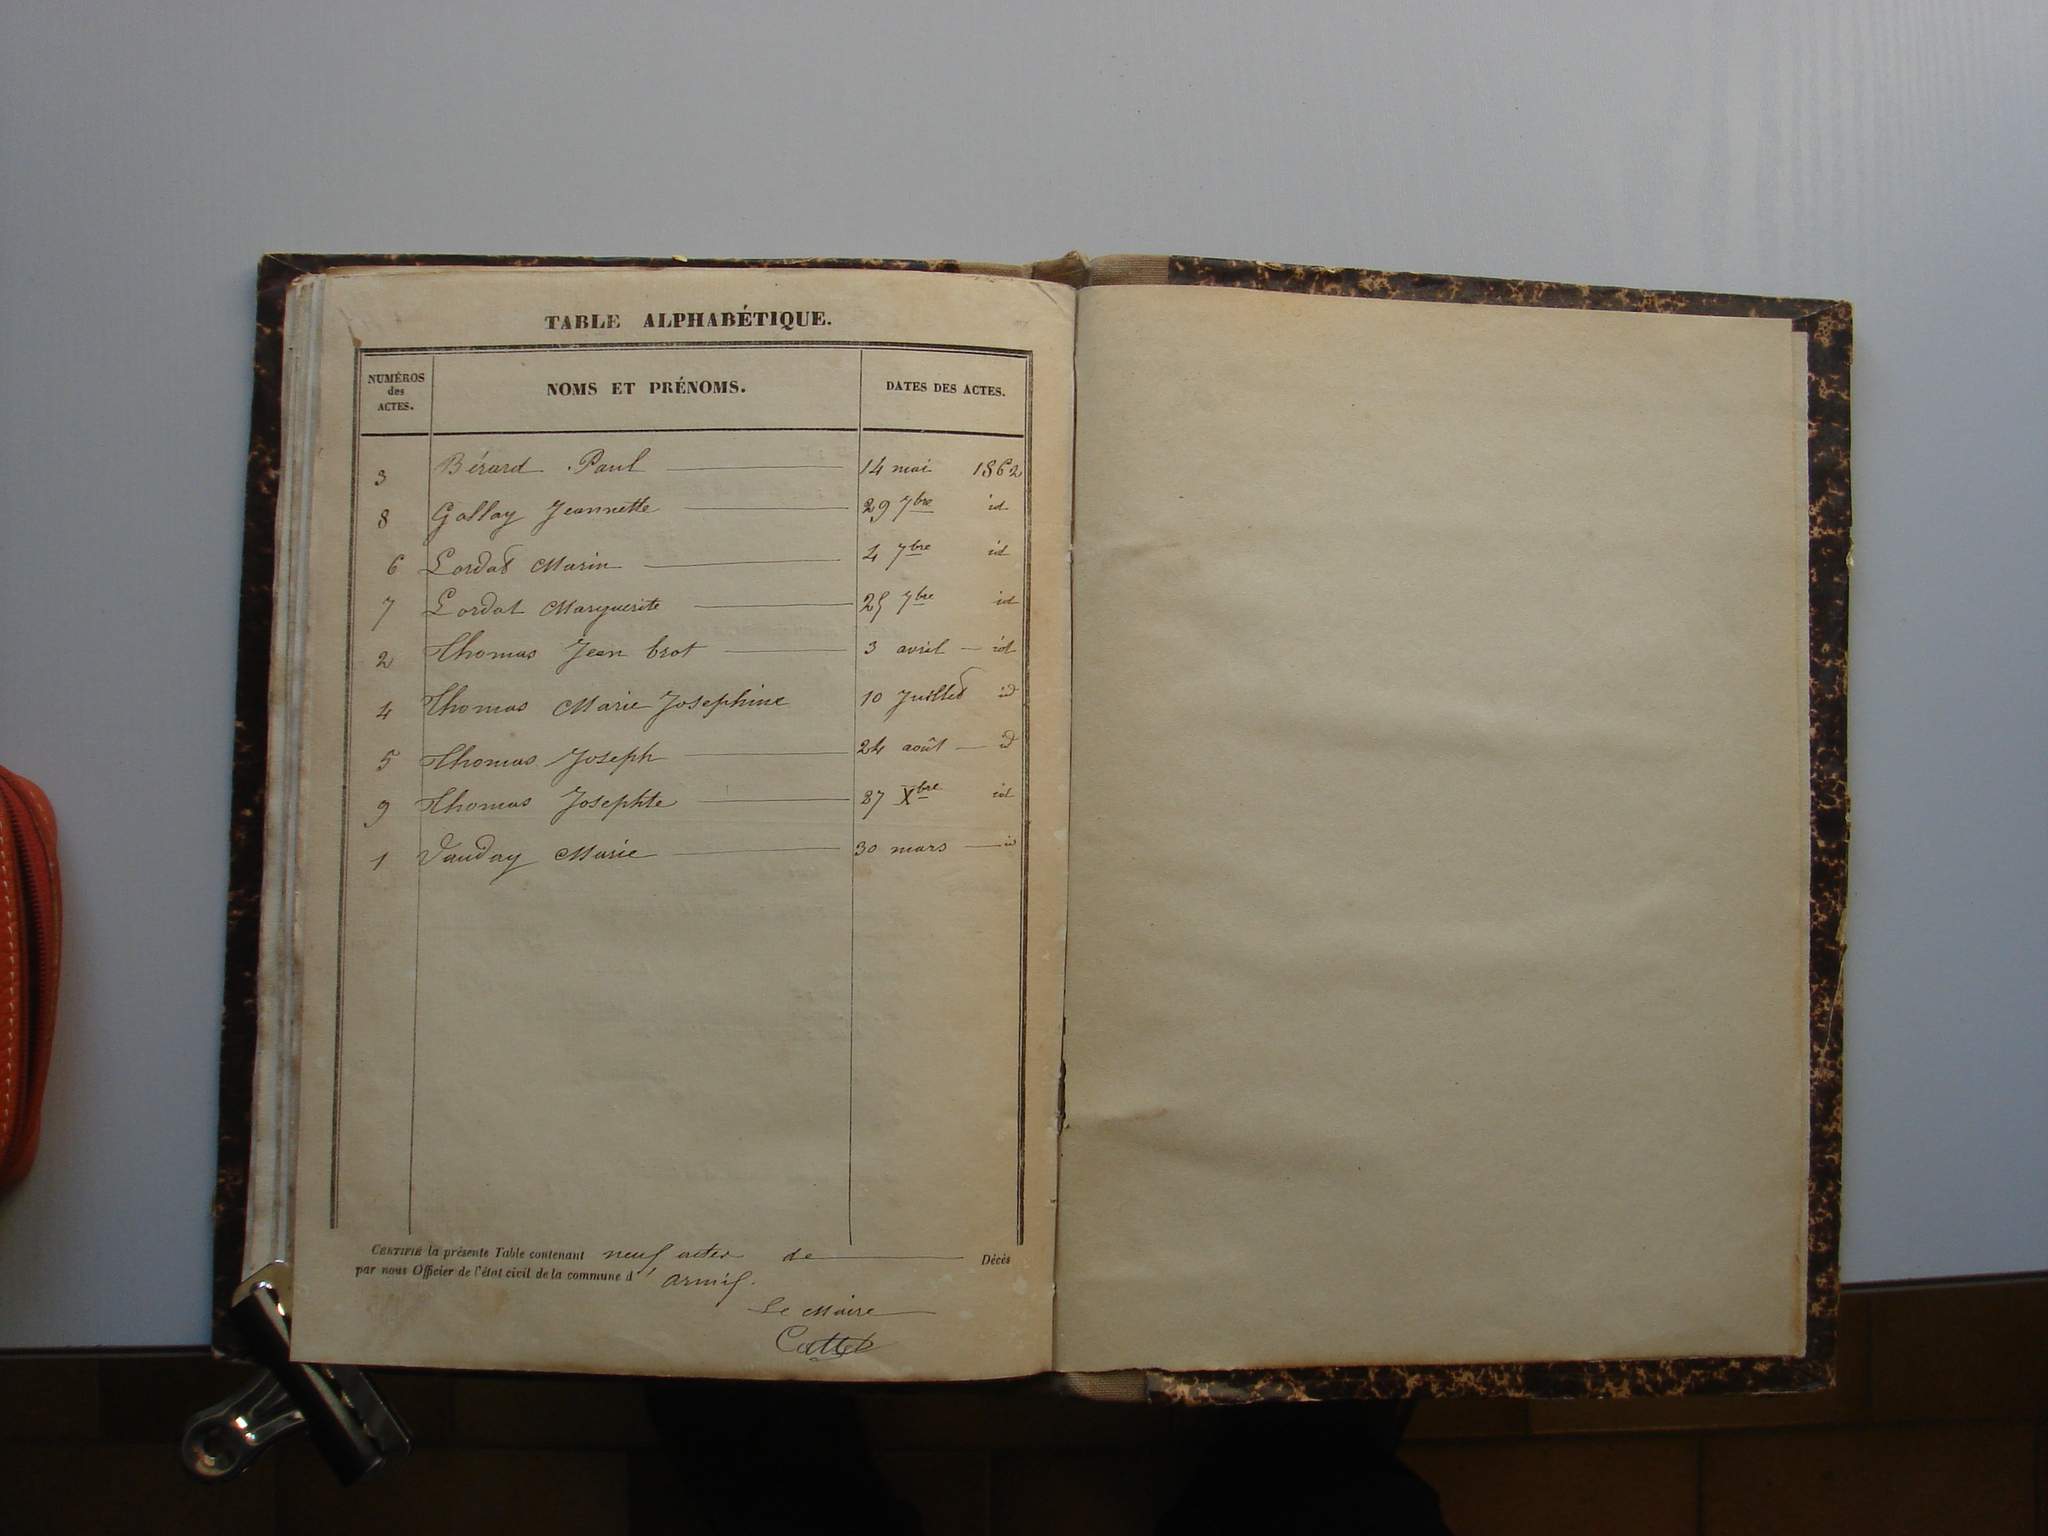 TABLE ALPHABÉTIQUE.
NUMÉROS des ACTES. NOMS ET PRÉNOMS. DATES DES ACTES.
3 Bérard Paul 14 mai 1862
8 Gallay Jeannette 29 7bre id
6 Lordat Marin 4 7bre id
7 Lordat Marguerite 25 7bre id
2 Thomas Jean brot 3 avril id
4 Thomas Marie Josephine 10 Juillet id
5 Thomas Joseph 24 août id
9 Thomas Josephte 27 Xbre id
1 Vauday Marie 30 mars id
CERTIFIÉ la présente Table contenant neuf actes de Décès
par nous Officier de l'état civil de la commune d'
Le Maire